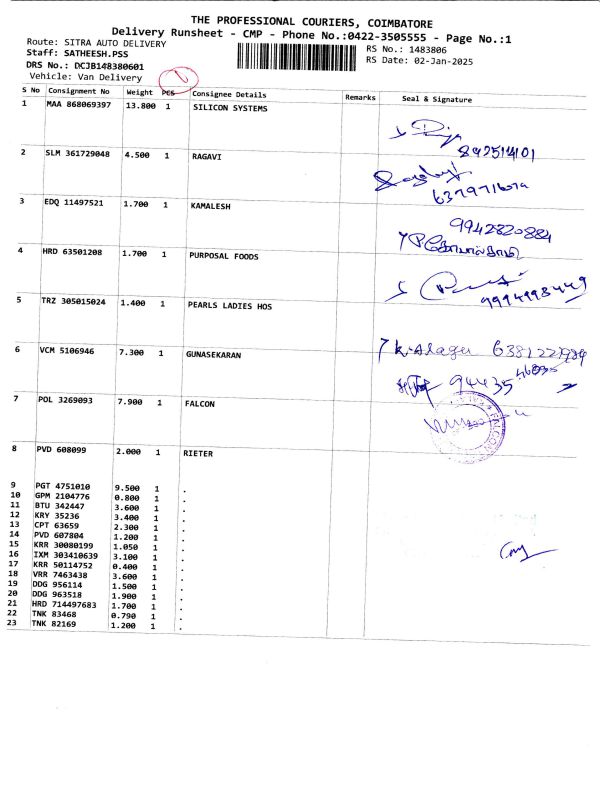 THE PROFESSIONAL COURIERS, COIMBATORE
Delivery Runsheet - CMP - Phone No.:0422-3505555 - Page No.:1
Route: SITRA AUTO DELIVERY
RS No.: 1483806
Staff: SATHEESH.PSS
RS Date: 02-Jan-2025
DRS No.: DCJB148380601
Vehicle: Van Delivery
S No Consignment No Weight PCS Consignee Details Remarks Seal & Signature
1 MAA 868069397 13.800 1 SILICON SYSTEMS
2 SLM 361729048 4.500 1 RAGAVI
3 EDQ 11497521 1.700 1 KAMALESH
9942820884
4 HRD 63501208 1.700 1 PURPOSAL FOODS
9994998449
5 TRZ 305015024 1.400 1 PEARLS LADIES HOS
K. Alagu
6 VCM 5106946 7.300 1 GUNASEKARAN
94435
7 POL 3269093 7.900 1 FALCON
FALCON
8 PVD 608099 2.000 1 RIETER
9 PGT 4751010 9.500 1 .
10 GPM 2104776 0.800 1 .
11 BTU 342447 3.600 1 .
12 KRY 35236 3.400 1 .
13 CPT 63659 2.300 1 .
14 PVD 607804 1.200 1 .
15 KRR 30080199 1.050 1 .
16 IXM 303410639 3.100 1 .
17 KRR 50114752 0.400 1 .
18 VRR 7463438 3.600 1 .
19 DDG 956114 1.500 1 .
20 DDG 963518 1.900 1 .
21 HRD 714497683 1.700 1 .
22 TNK 83468 0.790 1 .
23 TNK 82169 1.200 1 .